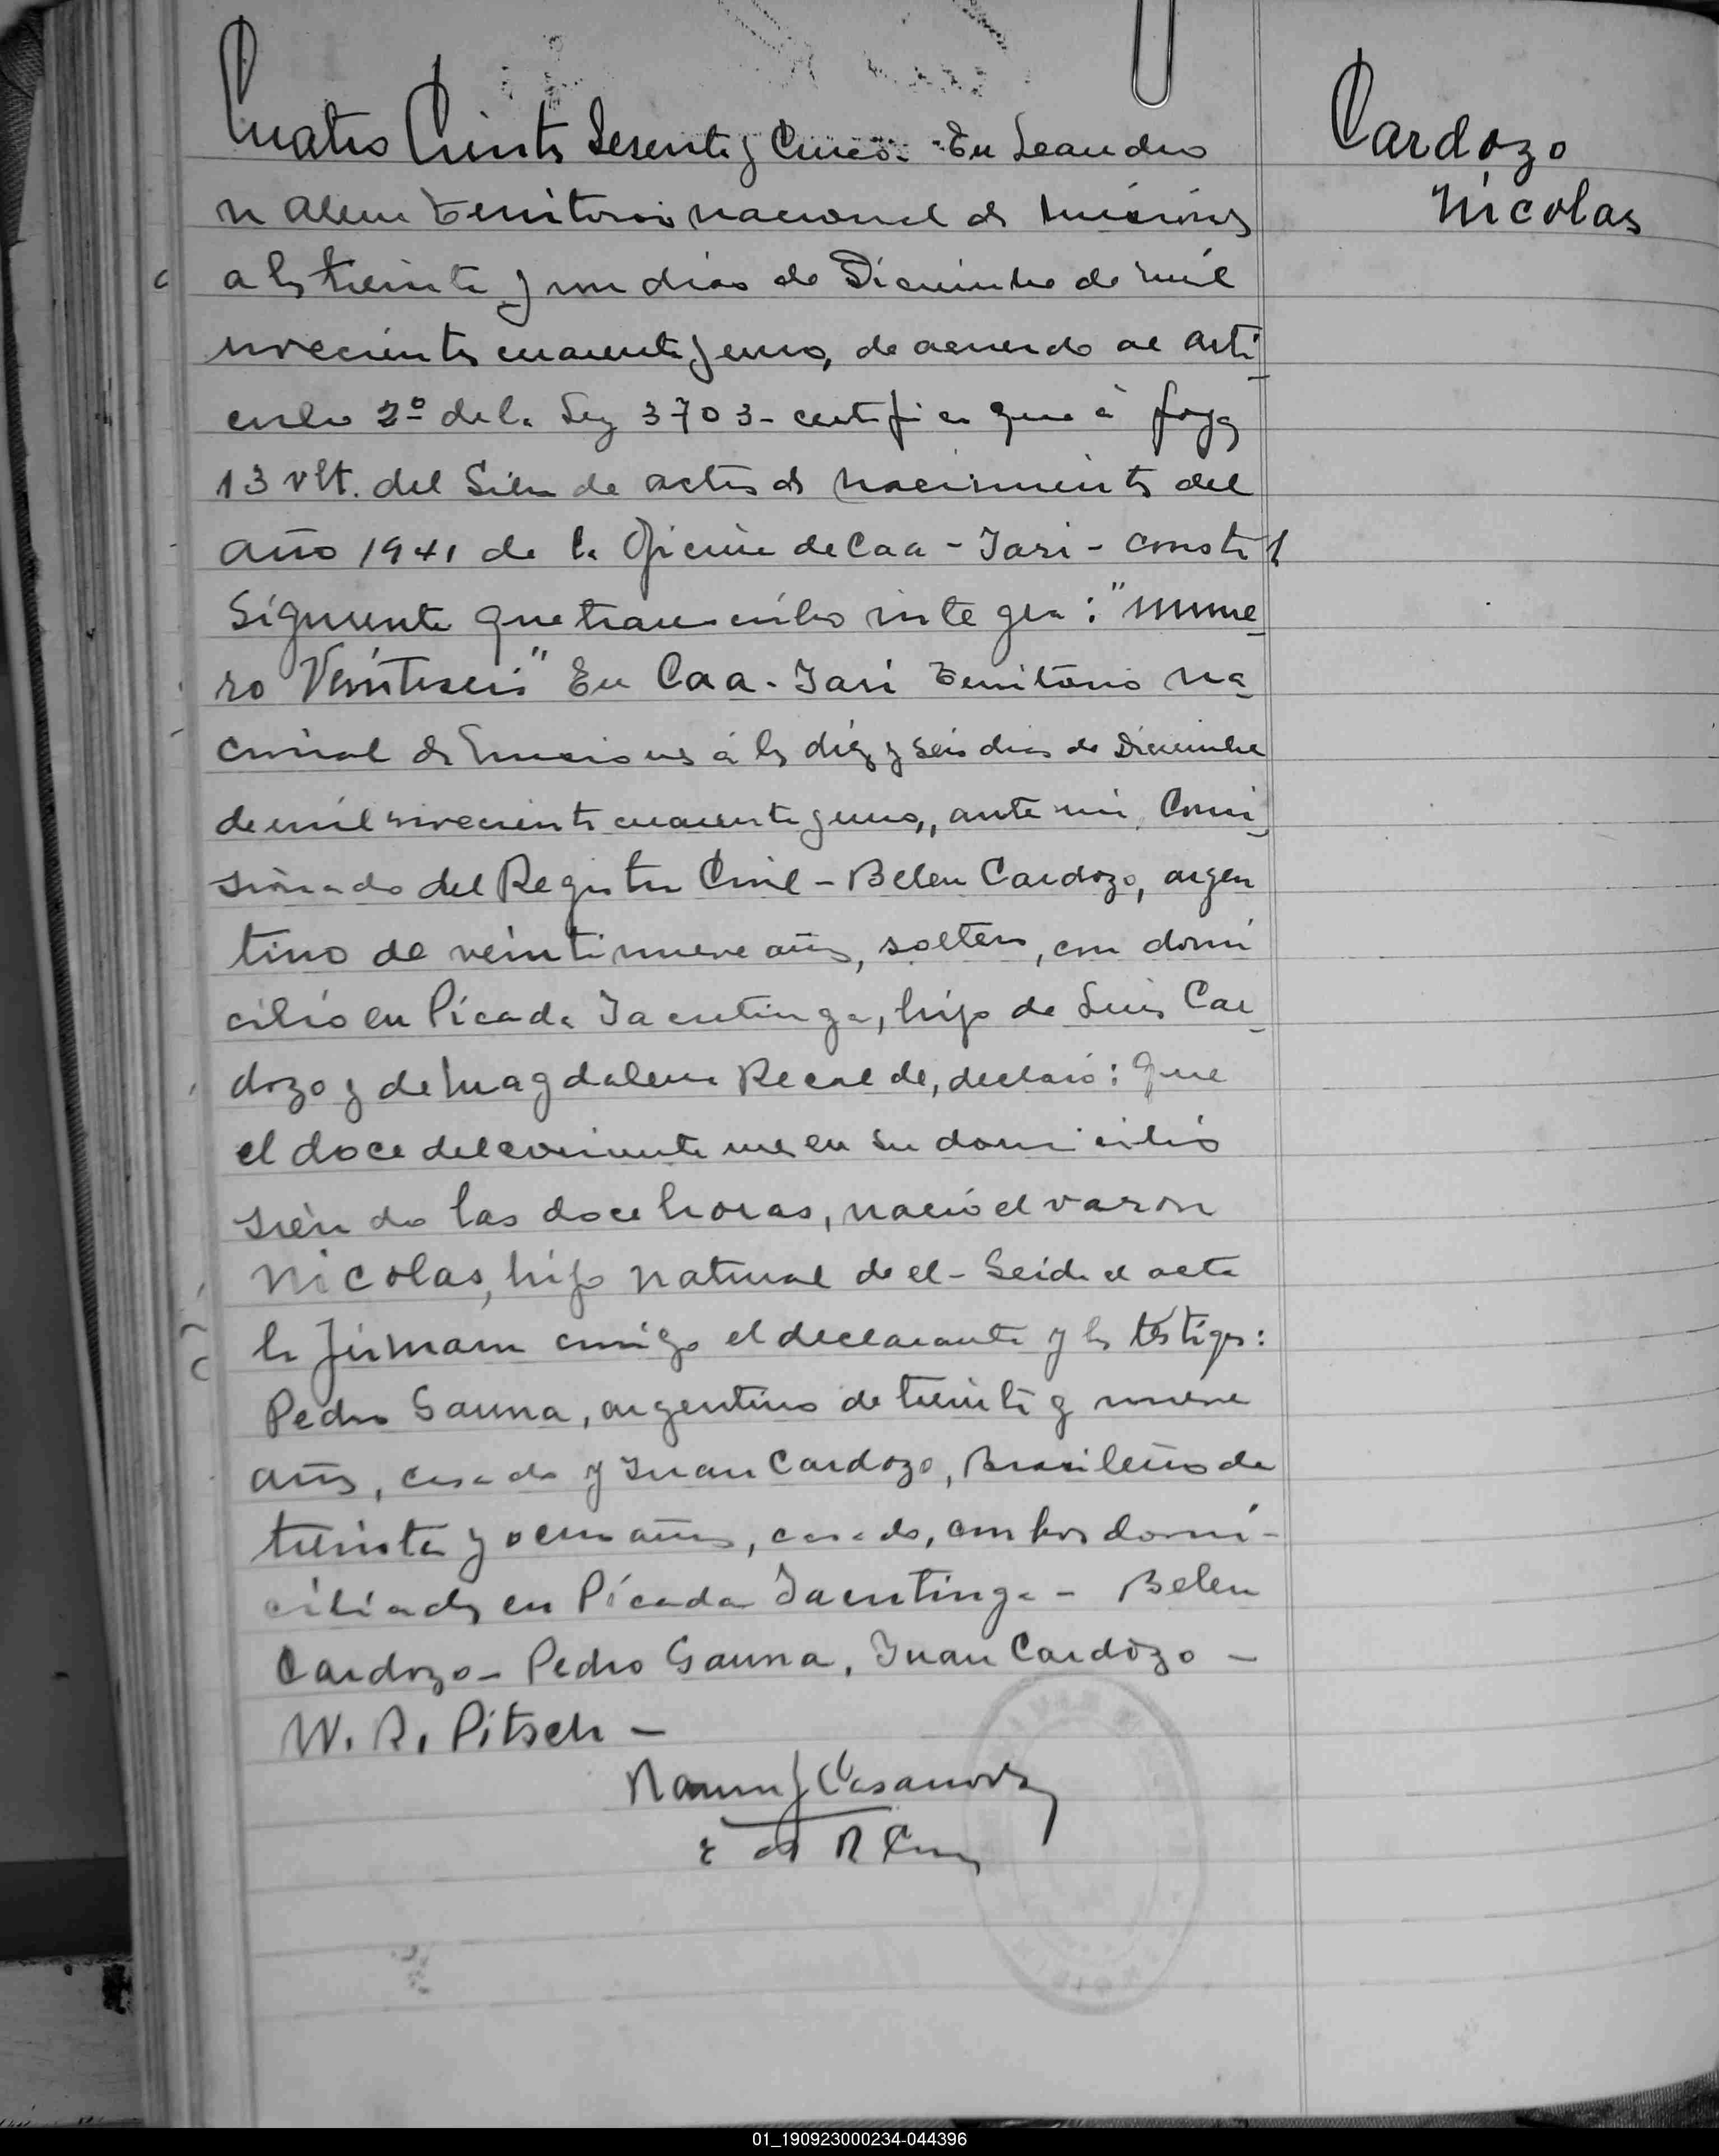 Cuatro Cientos Sesenta y Cinco. En Leandro
N Alem Territorio nacional de Misiones
a los treinta y un dias de Diciembre de mil
novecientos cuarenta y uno, de acuerdo al arti
culo 2º de la Ley 3703 - certifico que á fojas
13 vlt. del Libro de actas de nacimientos del
año 1941 de la Oficina de Caa - Yari - consta l
Siguiente que transcribo integra: "Nume
ro Veintiseis" En Caa - Yari Territorio na
cional de Misiones á los diez y seis dias de Diciembre
de mil novecientos cuarenta y uno, ante mi, Comi
sionado del Registro Civil - Belen Cardozo, argen
tino de veintinueve años, soltero, con domi
cilio en Picada Yacutinga, hijo de Luis Car
dozo y de Magdalena Recalde, declaró: Que
el doce del corriente mes en su domicilio
siendo las doce horas, nació el varon
Nicolas, hijo natural de el - Leida el acta
la firmaron conmigo el declarante y los testigos:
Pedro Gauna, argentino de treinta y nueve
años, casado y Juan Cardozo, Brasileño de
treinta y ocho años, casado, ambos domi-
ciliados en Picada Yacutinga - Belen
Cardozo - Pedro Gauna, Juan Cardozo -
W. R. Pitsch -
Casanova
Cardozo
Nicolas
01_190923000234-044396